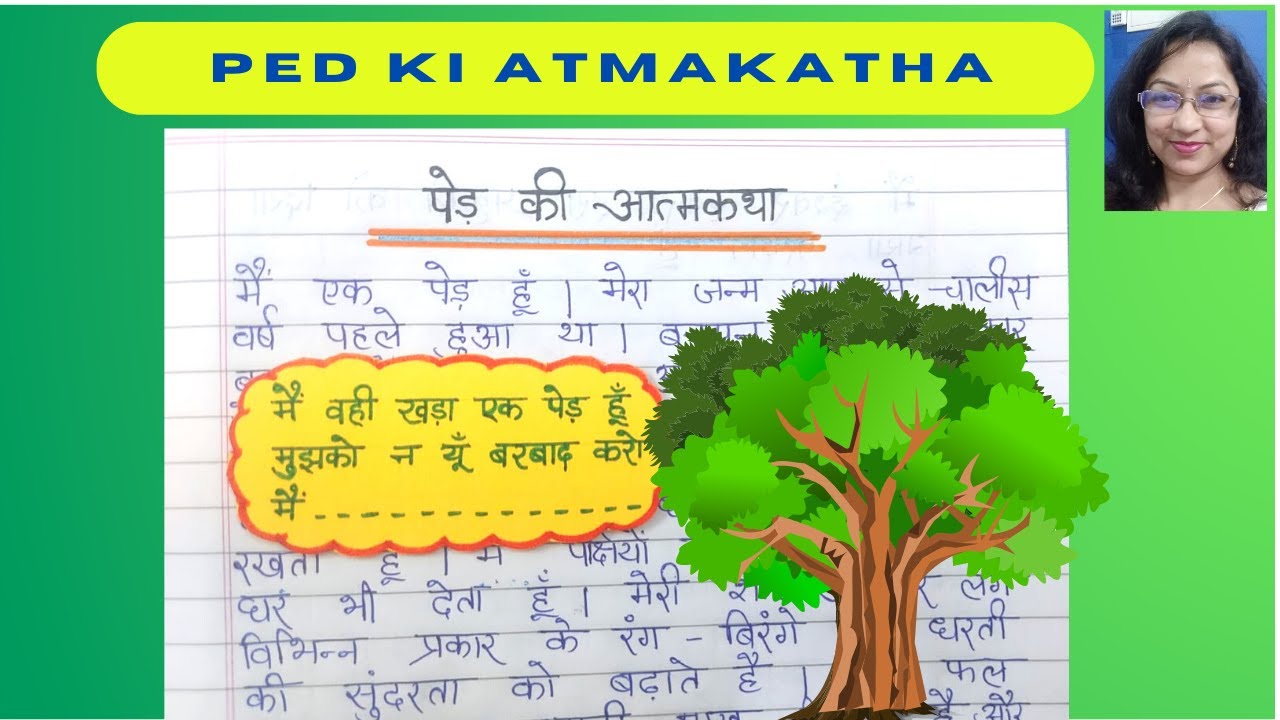 PED KI ATMAKATHA
पेड़ की आत्मकथा
मैं एक पेड़ हूँ । मेरा जन्म से चालीस
वर्ष पहले हुआ था ।
मैं वही खड़ा एक पेड़ हूँ
मुझको न यूँ बरबाद करो
मैं --------------
रखता हूँ । मैं पक्षियों
घर भी देता हूँ । मेरी
विभिन्न प्रकार के रंग - बिरंगे धरती
की सुंदरता को बढ़ाते है । फल
है और